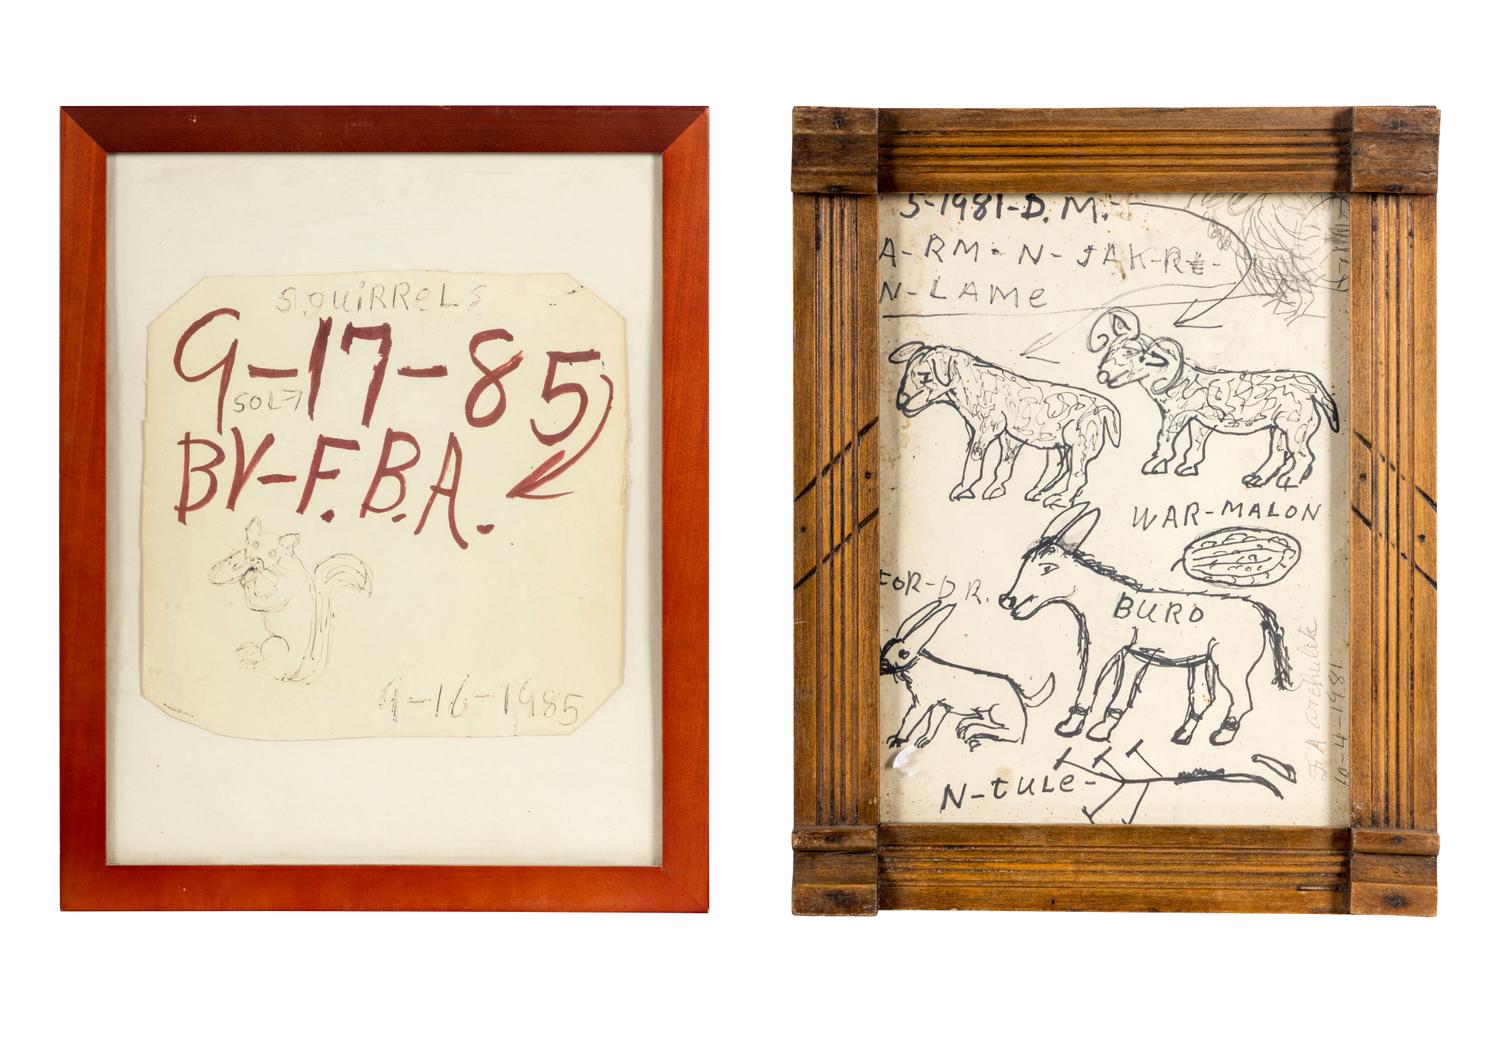 SQUiRReLS
9-17-85
SOL-7
BY-F.B.A.
9-16-1985
5-1981-D.M.
A-RM-N-JAK-Rt-
N-LAMe
WAR-MALON
tOR-D R.
BURO
N-tULe-
F. A archulete
10-4-1981